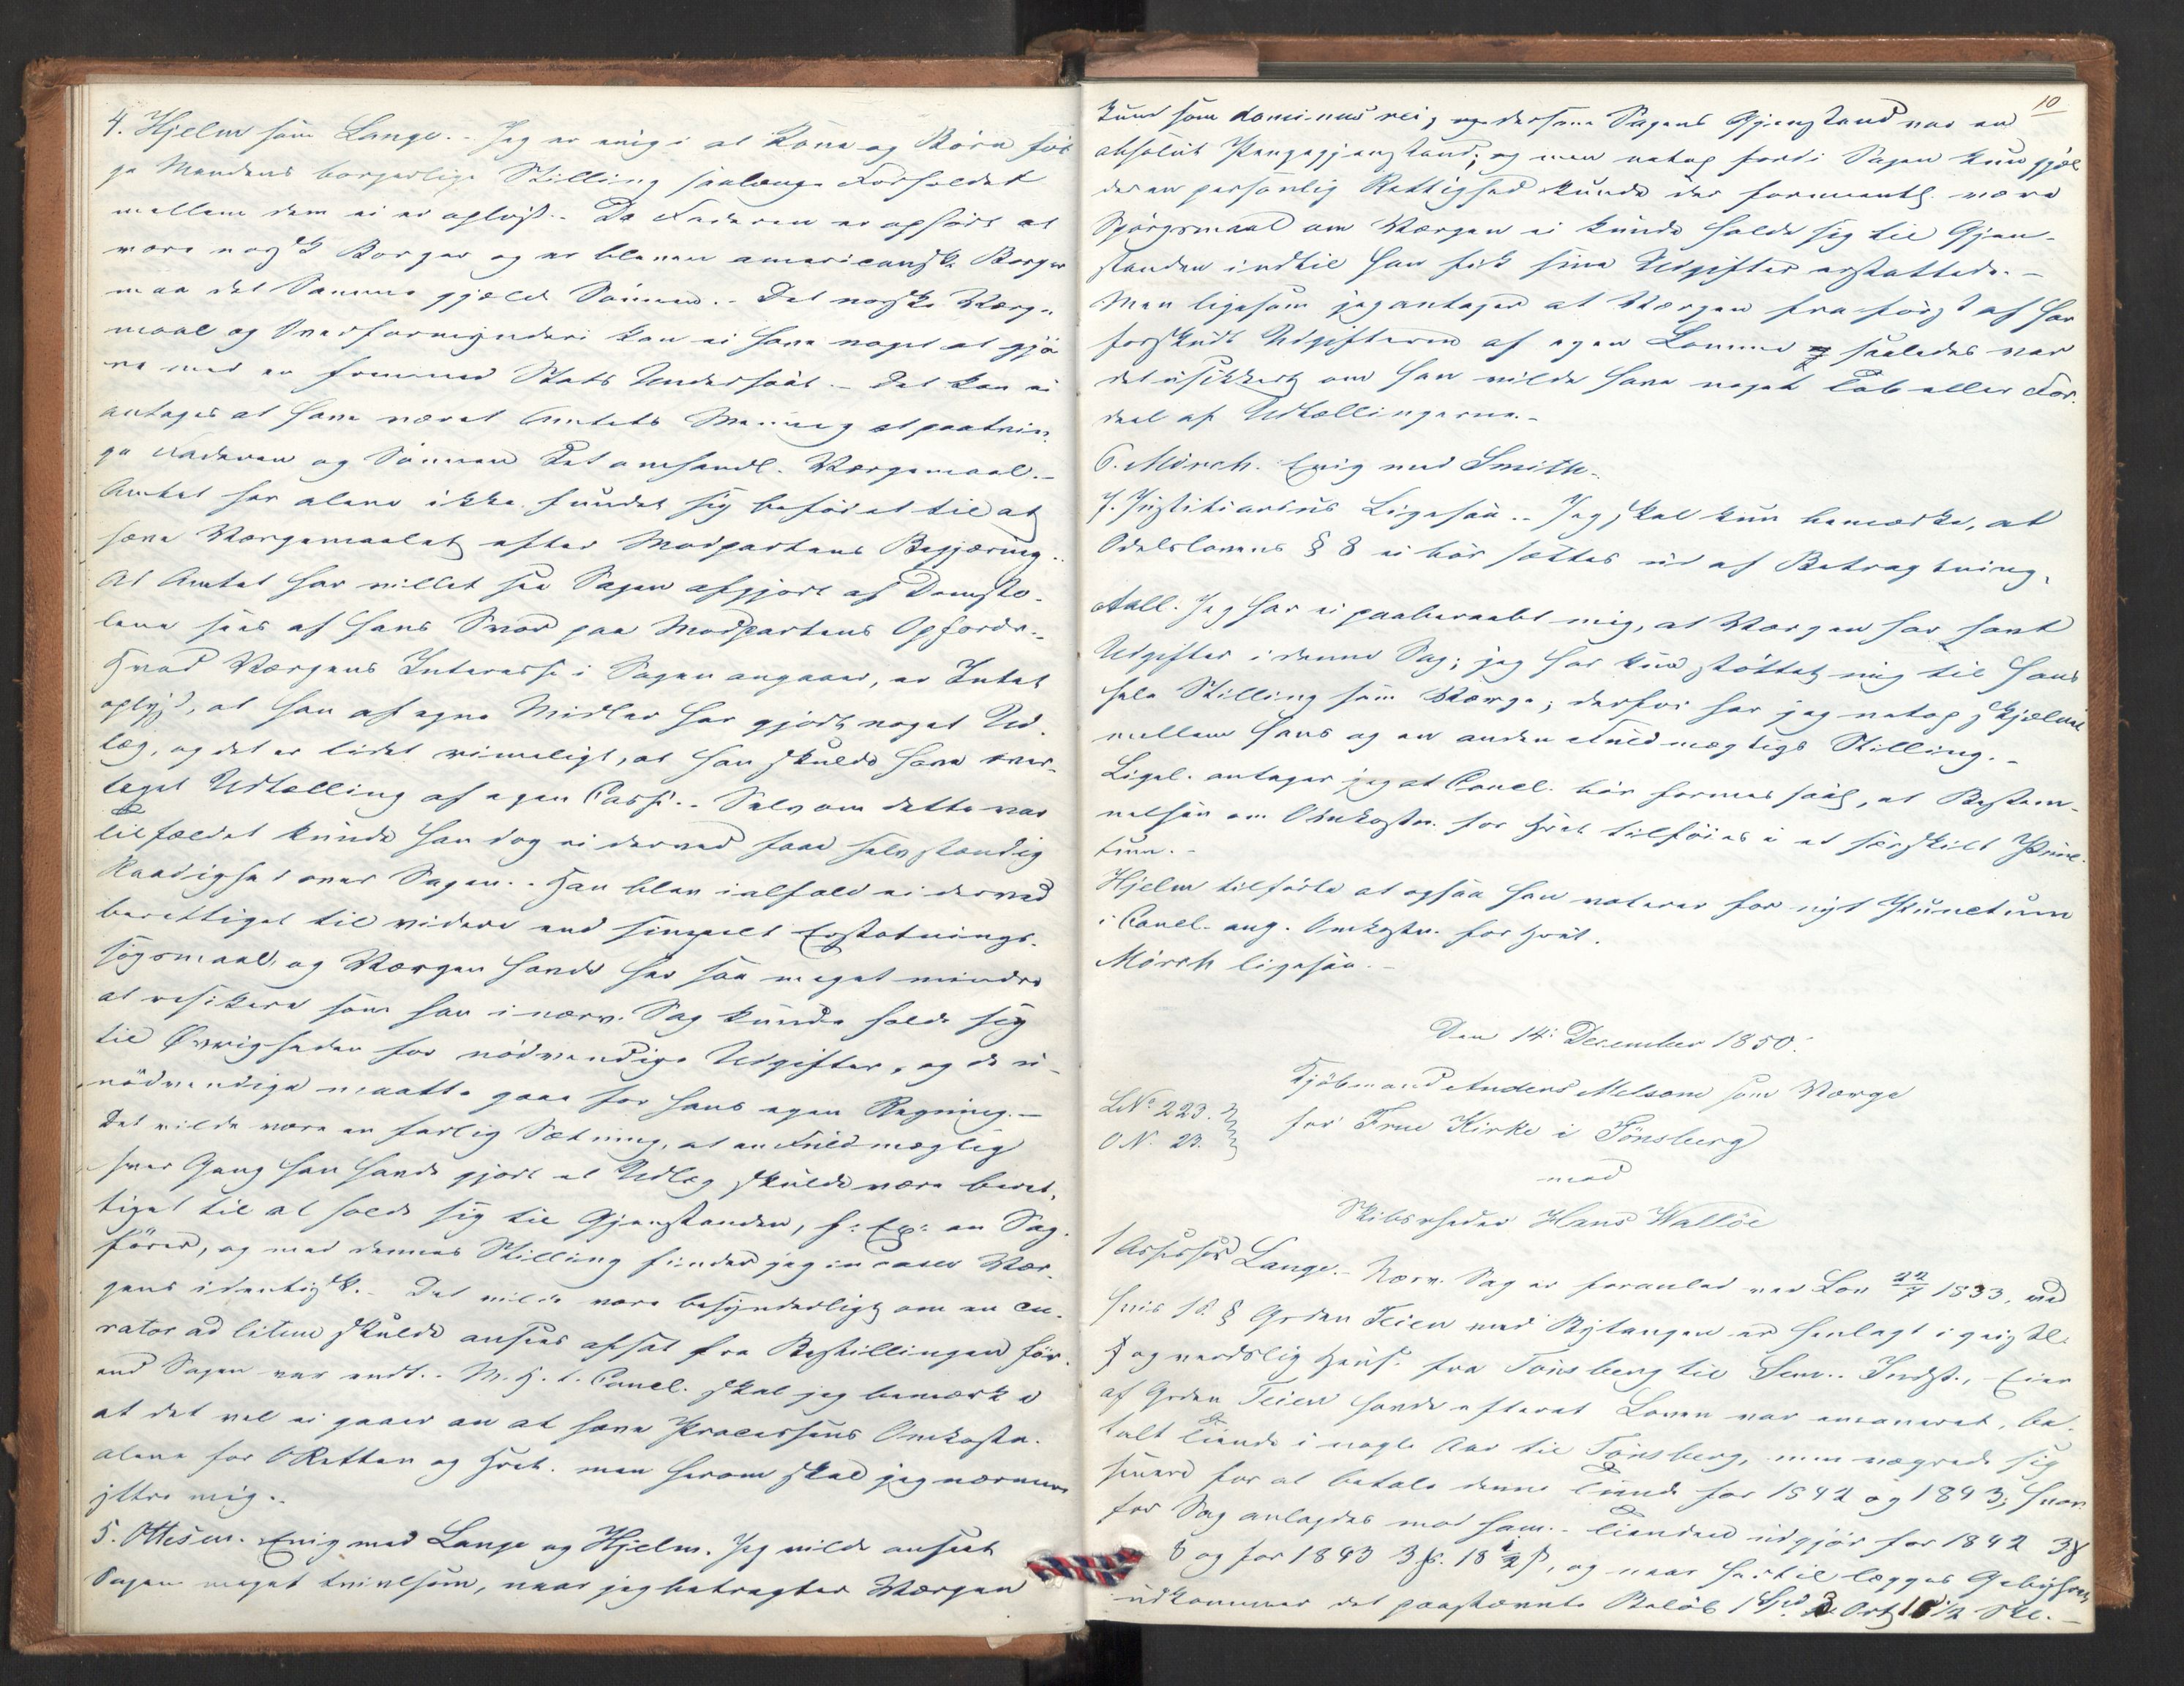 4. Hjelm som Lange. - Jeg er enig i at Kone og Børn føl-
ge Mandens borgerlige Stilling saalænge Forholdet
mellem dem ei er opløst. - Da Faderen er ophørt at
være norsk Borger og er bleven americansk Borger
maa det Samme gjælde Sønnen. - Det norske Værge-
maal og Overformynderi kan ei have noget at gjø-
re med en fremmed Stats Undersaat. - Det kan ei
antages at have været Amtets Mening at paatvin-
ge Faderen og Sønnen Det omhandl. Værgemaal. -
Amtet har alene ikke fundet sig beføiet til at
hæve Værgemaalet efter Modpartens Begjæring. -
At Amtet har villet see Sagen afgjort af Domsto-
lene sees af hans Svar paa Modpartens Opfordr. -
Hvad Værgens Interesse i Sagen angaaer, er Intet
oplyst, at han af egne Midler har gjort noget Ud-
læg, og det er lidet rimeligt, at han skulde have over-
taget Udtælling af egen Casse. - Selv om dette var
Tilfældet kunde han dog ei derved faae selvstændig
Raadighed over Sagen. - Han blev ialfald ei derved
berettiget til videre end simpelt Erstatnings-
søgsmaal, og Værgen havde her saa meget mindre
at risikere som han i nærv. Sag kunde holde sig
til Øvrigheden for nødvendige Udgifter, og de u-
nødvendige maatte gaae for hans egen Regning. -
Det vilde være en farlig Sætning, at en Fuldmægtig
hver Gang han havde gjort et Udlæg skulde være beret-
tiget til at holde sig til Gjenstanden, f: Ex: en Sag-
fører, og med dennes Stilling finder jeg in casu Vær-
gens identisk. - Det vilde være besynderligt om en cu-
rator ad litem skulde ansees afsat fra Bestillingen før-
end Sagen var endt. - M. H. t. Concl. skal jeg bemærke
at det vel ei gaaer an at hæve Processens Omkostn.
alene for ORetten og Hret. men herom skal jeg nærmere
yttre mig. -
5. Ottesen. Enig med Lange og Hjelm. Jeg vilde anseet
Sagen meget tvivlsom, naar jeg betragter Værgen
10
kun som dominus rei, dersom Sagens Gjenstand var en
absolut Pengegjenstand; og men netop fordi Sagen kun gjæl-
der en personlig Rettighed kunde der formentl. være
Spørgsmaal om Værgen ei kunde holde sig til Gjen-
standen indtil han fik sine Udgifter erstattede. -
Men ligesom jeg antager at Værgen fra først af har
forskudt Udgifterne af egen Lomme saaledes var
det usikkert om han vilde have noget Tab eller For-
deel af Udtællingerne. -
6. Mörch. Enig med Smith.
7. Justitiarius Ligesaa. - Jeg skal kun bemærke, at
Odelslovens § 8 ei bør sættes ud af Betragtning.
Aall. Jeg har ei paaberaabt mig, at Værgen har havt
Udgifter i denne Sag; jeg har kun støttet mig til hans
hele Stilling som Værge; derfor har jeg netop skjelnet
mellem hans og en anden Fuldmægtigs Stilling. -
Ligel. antager jeg at Concl. bør formes saal., at Bestem-
melsen om Omkostn. for Hret tilføies i et særskilt Punc-
tum. -
Hjelm tilførte at ogsaa han voterer for nyt Punctum
i Concl. ang. Omkostn. for Hret.
Mörch ligesaa. -
Den 14: December 1850.
LNo 223.
O.N. 23.
Kjøbmand Anders Melsom som Værge
for Frue Kirke i Tönsberg
mod
Skibsrheder Hans Wallöe
1 Assessor Lange. - Nærv. Sag er foranled. ved Lov 22/7 1833, ved
hvis 10. § Grden Teien med Bytangen er henlagt i geistl.
og verdslig Hens. fra Tönsberg til Sem. - Indst., Eier
af Grden Teien havde efterat Loven var emaneret, be-
talt Tiende i nogle Aar til Tönsberg, men vægrede sig
senere for at betale denne Tiende for 1842 og 1843; hvor-
for Sag anlagdes mod ham. - Tienden udgjør for 1842 3
8 og for 1843 3 18 1/2 ß, og naar hertil lægges Gebyhret
udkommer det paastævnte Beløb 1 Spd 3 Ort 16 1/2 Skl. -